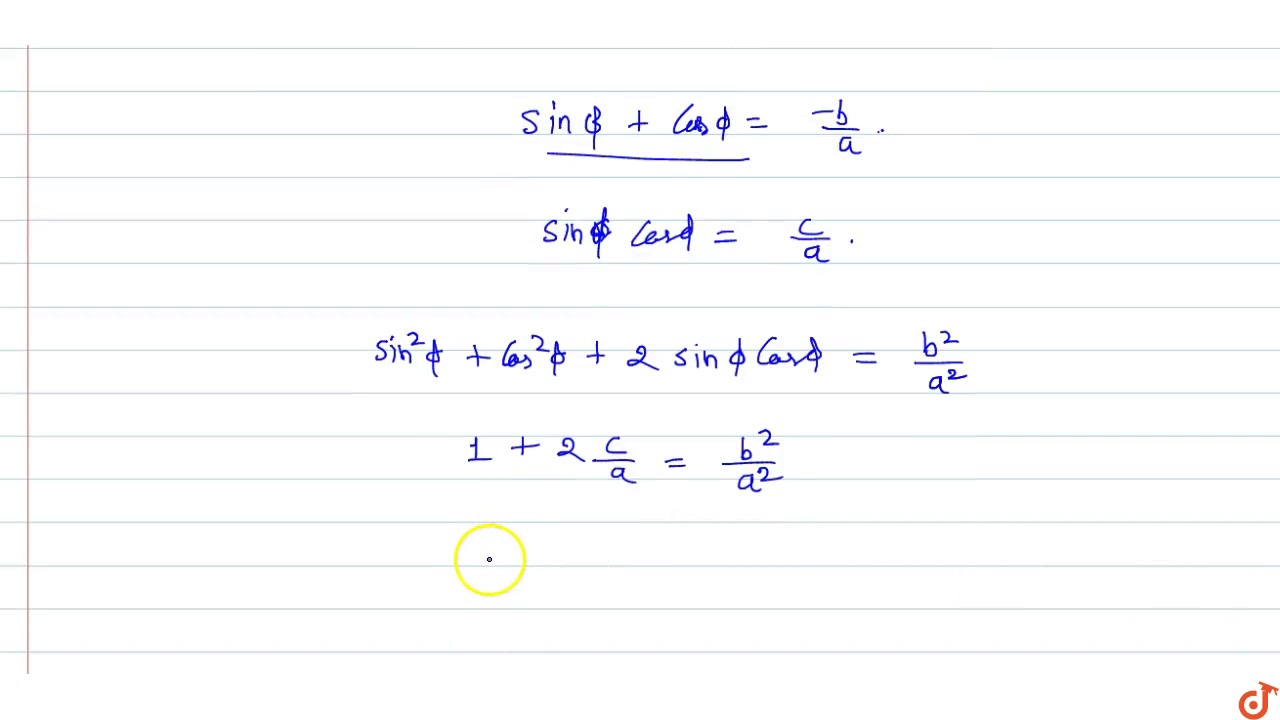 sinϕ + Cosϕ = -b/a .
sinϕ Cosϕ = c/a .
sin²ϕ + Cos²ϕ + 2 sinϕ Cosϕ = b²/a²
1 + 2 c/a = b²/a²